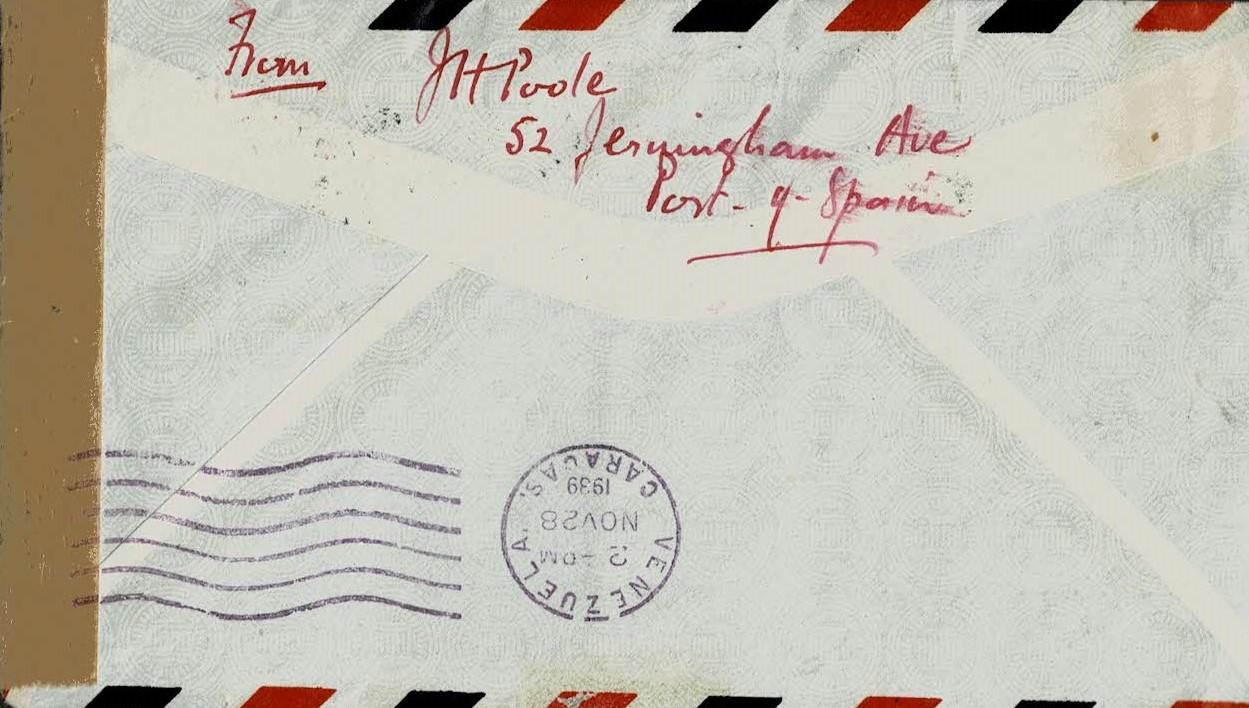 From JH Poole
52 Jerningham Ave
Port-of-Spain
CARACAS
1939
NOV 28
2-PM
VENEZUELA.